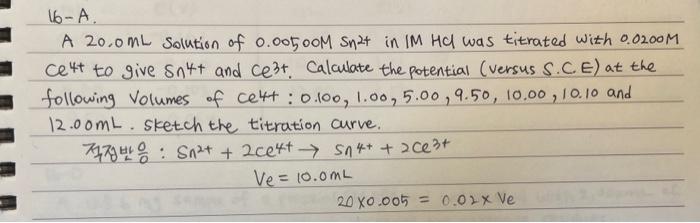 16-A.
A 20.0mL Solution of 0.00500M Sn2+ in 1M HCl was titrated with 0.0200M
Ce4+ to give Sn4+ and Ce3+. Calculate the potential (versus S.C.E) at the
following Volumes of Ce4+ : 0.100, 1.00, 5.00, 9.50, 10.00, 10.10 and
12.00mL. Sketch the titration curve.
적정반응 : Sn2+ + 2Ce4+ → Sn4+ + 2Ce3+
Ve = 10.0mL
20×0.005 = 0.02× Ve